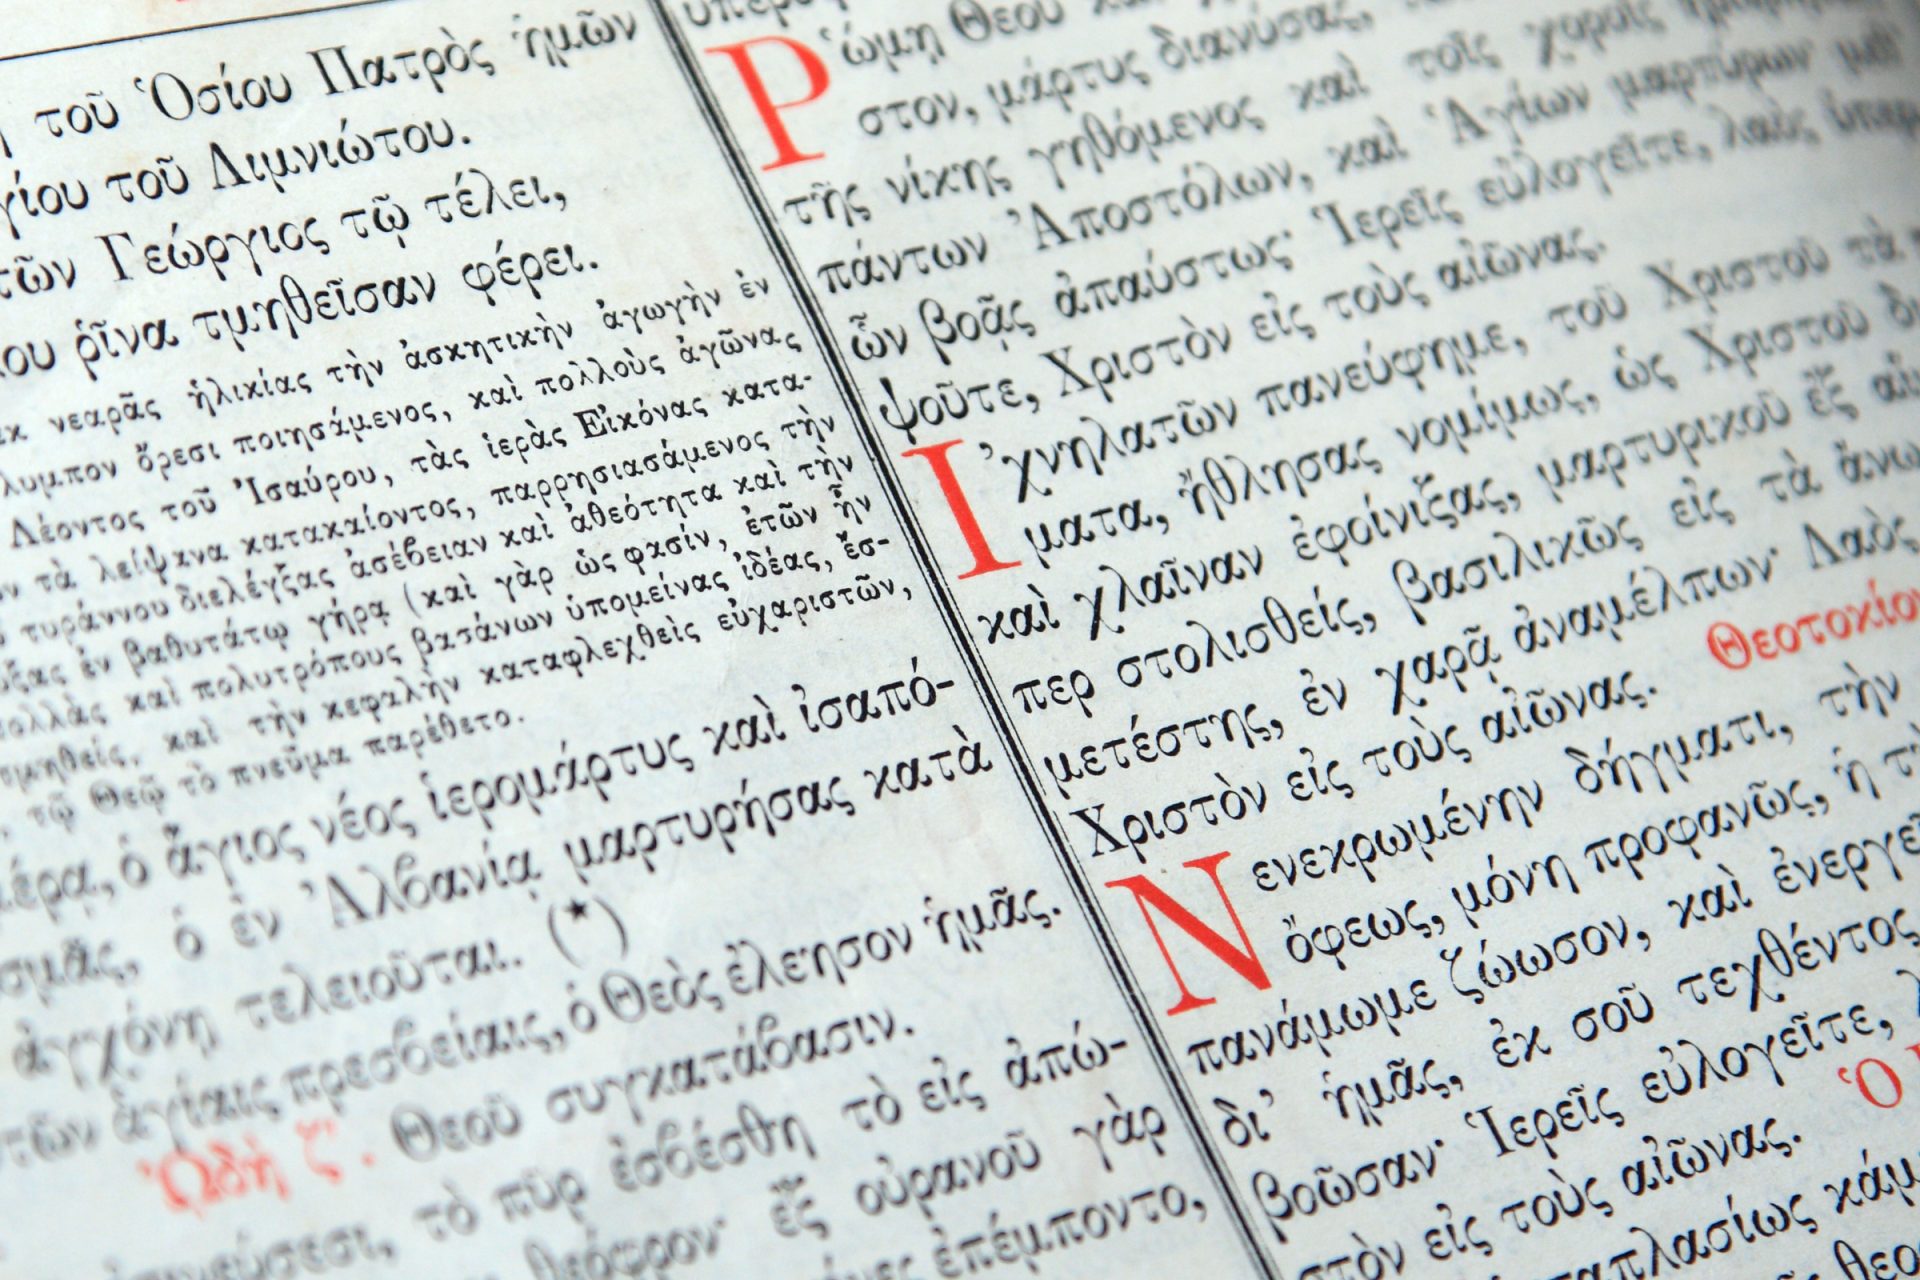 τοῦ Ὁσίου Πατρὸς ἡμῶν
γίου τοῦ Λιμνιώτου.
τῶν Γεώργιος τῷ τέλει,
ου ῥῖνα τμηθεῖσαν φέρει.
ἐκ νεαρᾶς ἡλικίας τὴν ἀσκητικὴν ἀγωγὴν ἐν
λυμπον ὄρεσι ποιησάμενος, καὶ πολλοὺς ἀγῶνας
Λέοντος τοῦ Ἰσαύρου, τὰς ἱερὰς Εἰκόνας κατα-
τὰ λείψανα κατακαίοντος, παρρησιασάμενος τὴν
τυράννου διελέγξας ἀσέβειαν καὶ ἀθεότητα καὶ τὴν
ξας ἐν βαθυτάτῳ γήρᾳ (καὶ γὰρ ὡς φασίν, ἐτῶν ἦν
πολλὰς καὶ πολυτρόπους βασάνων ὑπομείνας ἰδέας, ἔσ-
τμηθείς, καὶ τὴν κεφαλὴν καταφλεχθεὶς εὐχαριστῶν,
τῷ Θεῷ τὸ πνεῦμα παρέθετο.
μέρᾳ, ὁ ἅγιος νέος ἱερομάρτυς καὶ ἰσαπό-
σμᾶς, ὁ ἐν Ἀλβανίᾳ μαρτυρήσας κατὰ
ἀγχόνῃ τελειοῦται. (*)
τῶν ἁγίαις πρεσβείαις, ὁ Θεὸς ἐλέησον ἡμᾶς.
ᾨδὴ ζ΄. Θεοῦ συγκατάβασιν.
τὸ πῦρ ἐσβέσθη τὸ εἰς ἀπώ-
θεόφρον· ἐξ οὐρανοῦ γὰρ
ἐπέμποντο,
Ῥώμῃ Θεοῦ
στον, μάρτυς διανύσας,
τῆς νίκης γηθόμενος καὶ τοῖς χοροῖς
πάντων Ἀποστόλων, καὶ Ἁγίων μαρτύρων
ὧν βοᾷς ἀπαύστως· Ἱερεῖς εὐλογεῖτε, λαὸς
ψοῦτε, Χριστὸν εἰς τοὺς αἰῶνας.
Ἰχνηλατῶν πανεύφημε, τοῦ Χριστοῦ τὰ
ματα, ἤθλησας νομίμως, ὡς Χριστοῦ
καὶ χλαῖναν ἐφοίνιξας, μαρτυρικοῦ ἐξ
περ στολισθείς, βασιλικῶς εἰς τὰ ἄνω
μετέστης, ἐν χαρᾷ ἀναμέλπων· Λαὸς
Χριστὸν εἰς τοὺς αἰῶνας. Θεοτοκίον
Νενεκρωμένην δήγματι, τὴν
ὄφεως, μόνη προφανῶς, ἡ
πανάμωμε ζώωσον, καὶ ἐνεργε
δι' ἡμᾶς, ἐκ σοῦ τεχθέντος
βοῶσαν· Ἱερεῖς εὐλογεῖτε,
στὸν εἰς τοὺς αἰῶνας. Ὁ
απλασίως κάμ
θεο